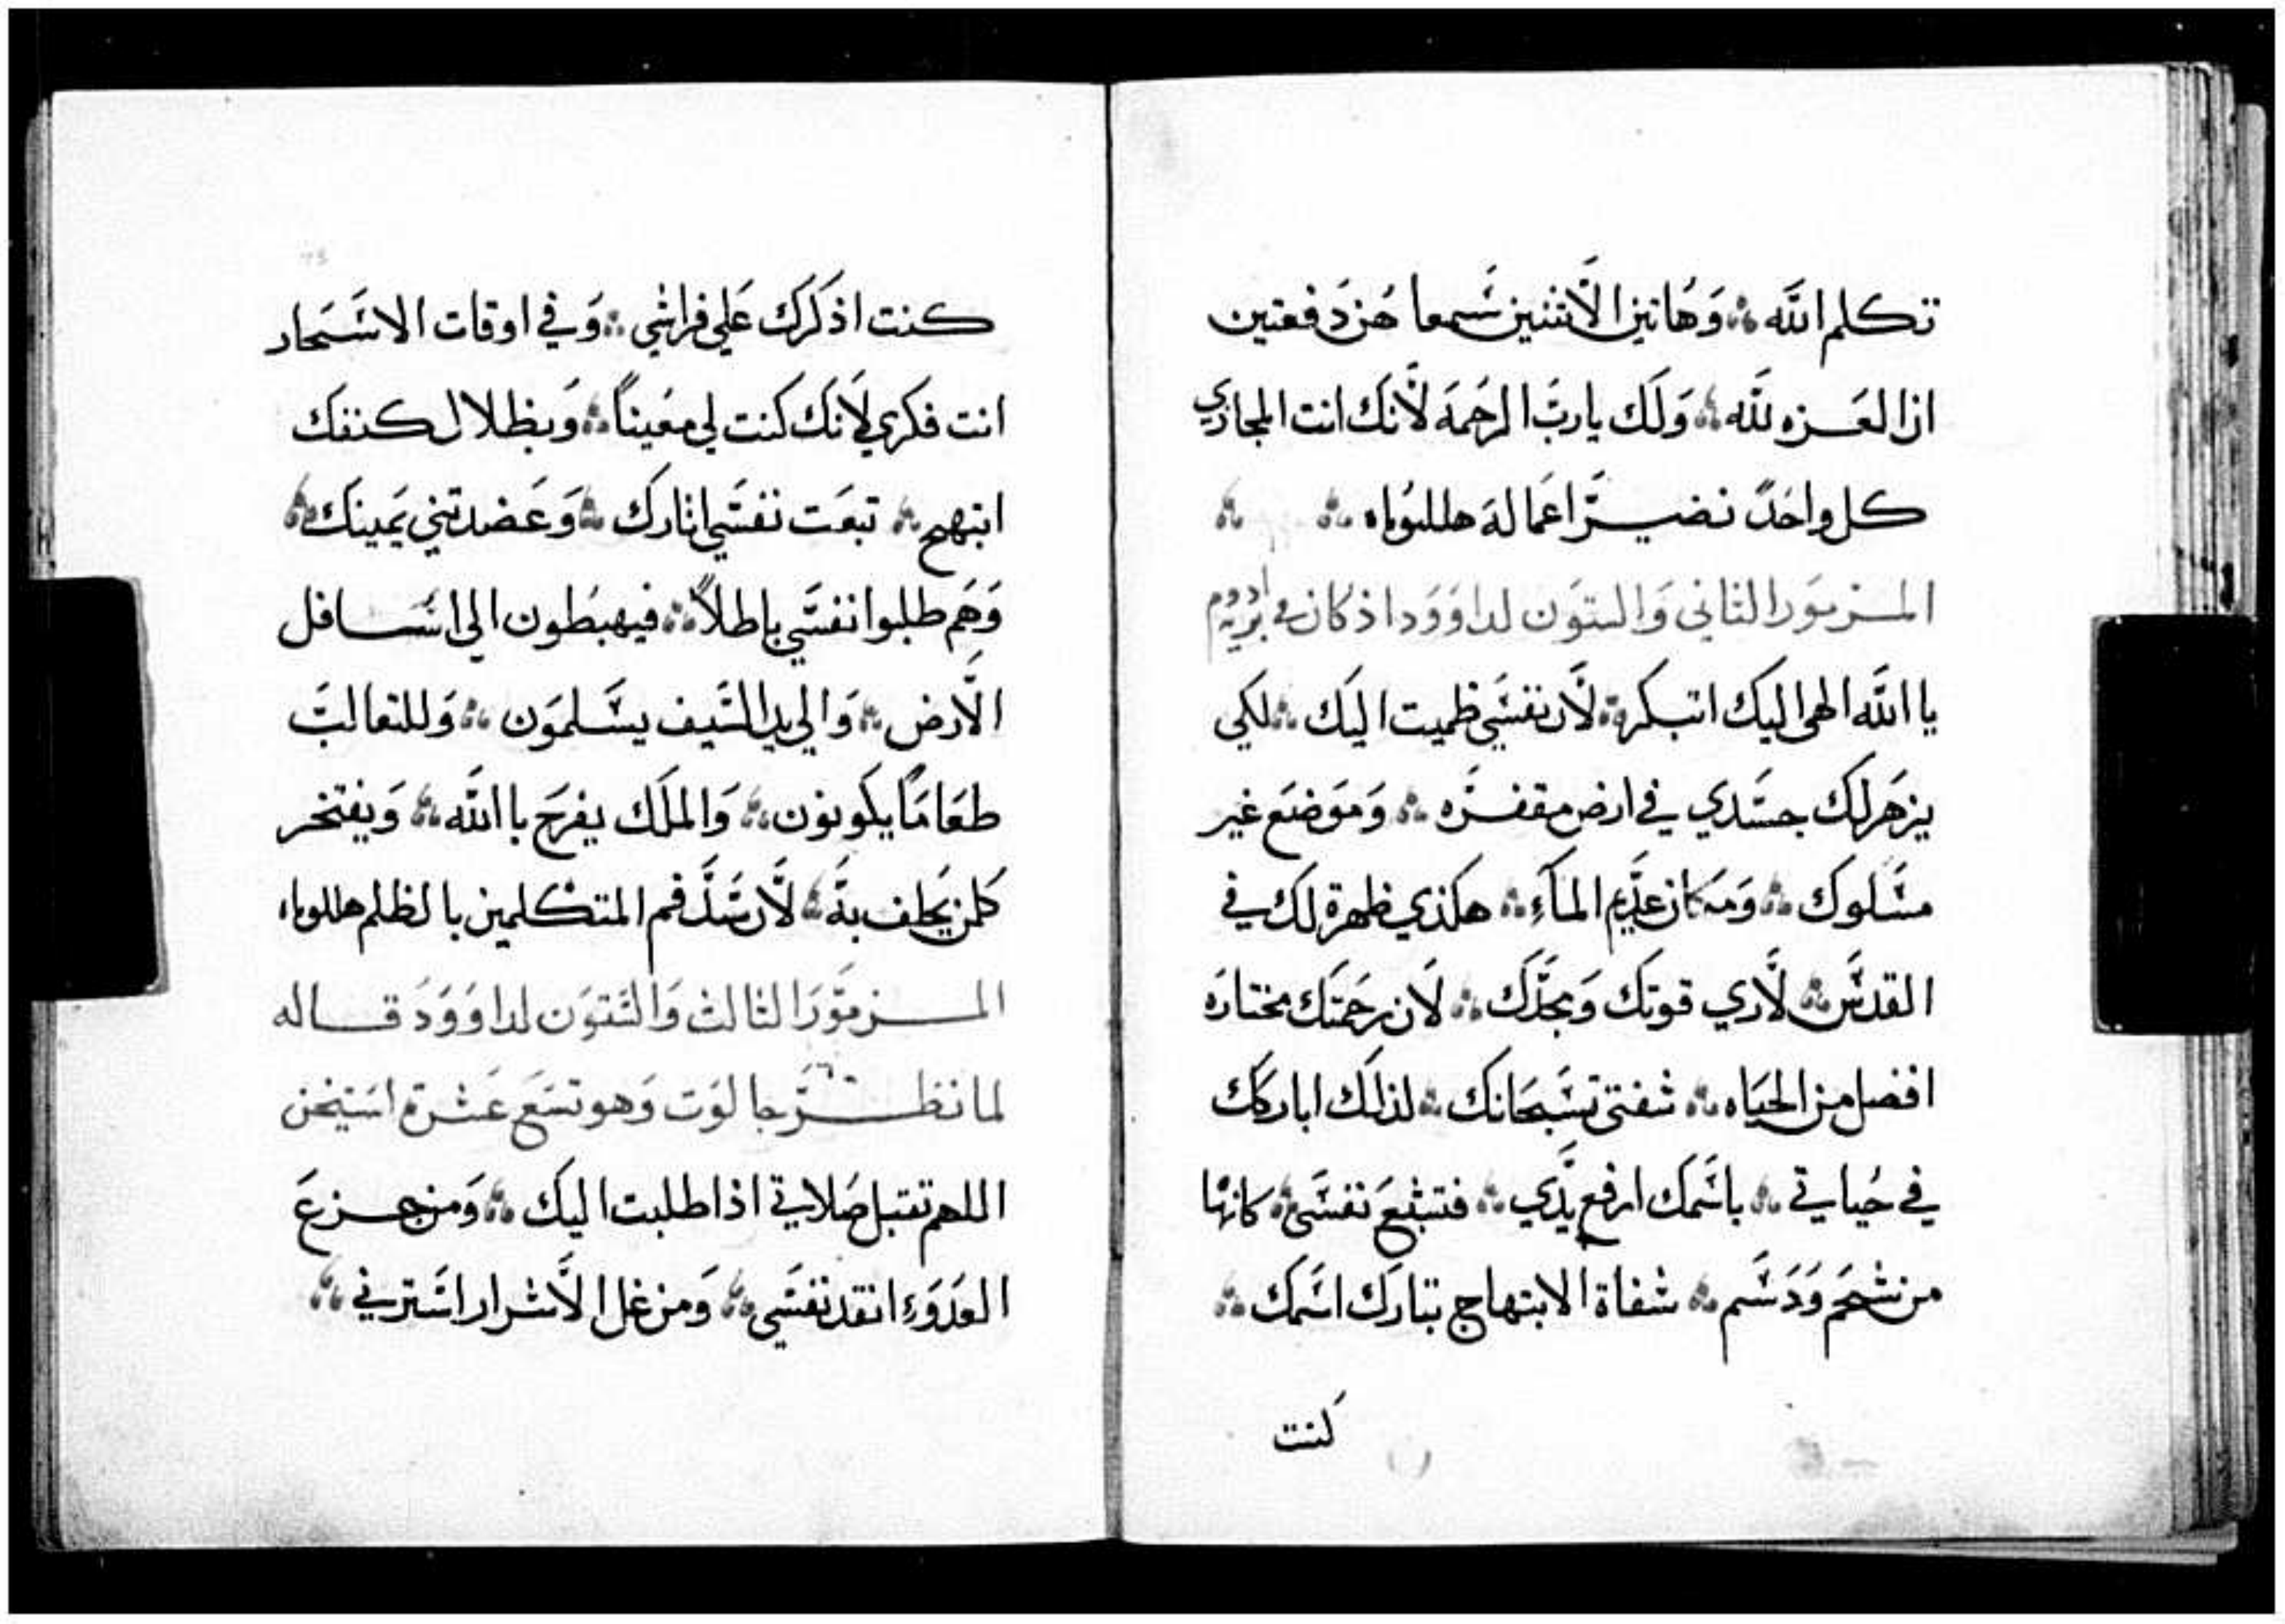 تكلم الله ؞ وَهَاتين الأثنين سَمعا هُن دَفعتين
ان العَزه لله ؞ وَلَك يارب الرحَمَه لأنك انت المجازي
كل واحَدٍ نضير اعَماله هلليُوياه ؞ ؞
المزمَور الثاني وَالستوَن لداوَوَد اذ كان في برية ادوم
يا الله الهى اليك ابتكر ؞ لأن نفسَي ظميت اليك ؞ لكي
يزهَر لك جسَدي في ارض مقفرَه ؞ وَموَضعَ غير
مسَلوك ؞ وَمَكان عدَيم المَاءِ ؞ هكذي ظهرة لك في
القدسَ ؞ لأري قوتك وَمجدَك ؞ لان رحَمتَك مختارَه
افضل من الحيَاه ؞ شفتى تسَبحَانك ؞ لذلك اباركك
في حُياتي ؞ باسَمك ارفع يدَي ؞ فتشبعَ نفسَى ؞ كانها
من شحَم وَدَسَم ؞ شفاة الابتهاج تبارَك اسَمك ؞
كنت
كنت اذكرَك عَلي فراشي ؞ وَفي اوقات الاسَحَار
انت فكري لأنك كنت لي معَيناً ؞ وَبظلال كنفك
ابتهج ؞ تبعَت نفسَي اثارك ؞ وَعَضدتني يمَينك ؞
وَهَم طلبوا نفسَي باطلاً ؞ فيهبَطون الى اسَافل
الأرض ؞ وَالي يد السَيف يسَلموَن ؞ وَللثعالبَ
طعَامَاً يكونون ؞ وَالملَك يفرَح با الله ؞ وَيفتخر
كلمن يحَلف بهَ ؞ لأن سَدَ فم المتكلمين بالظلم هللوياه
المزموَر الثالث وَالستوَن لداوَوَدَ قاله
لما نظر جالوَت وَهو تسَع عَشرة استيخن
اللهم تقبل صَلاتي اذا طلبت اليك ؞ وَمن جزعَ
العَدَوَء انقد نفسَي ؞ وَمن غل الأشرار استرني ؞